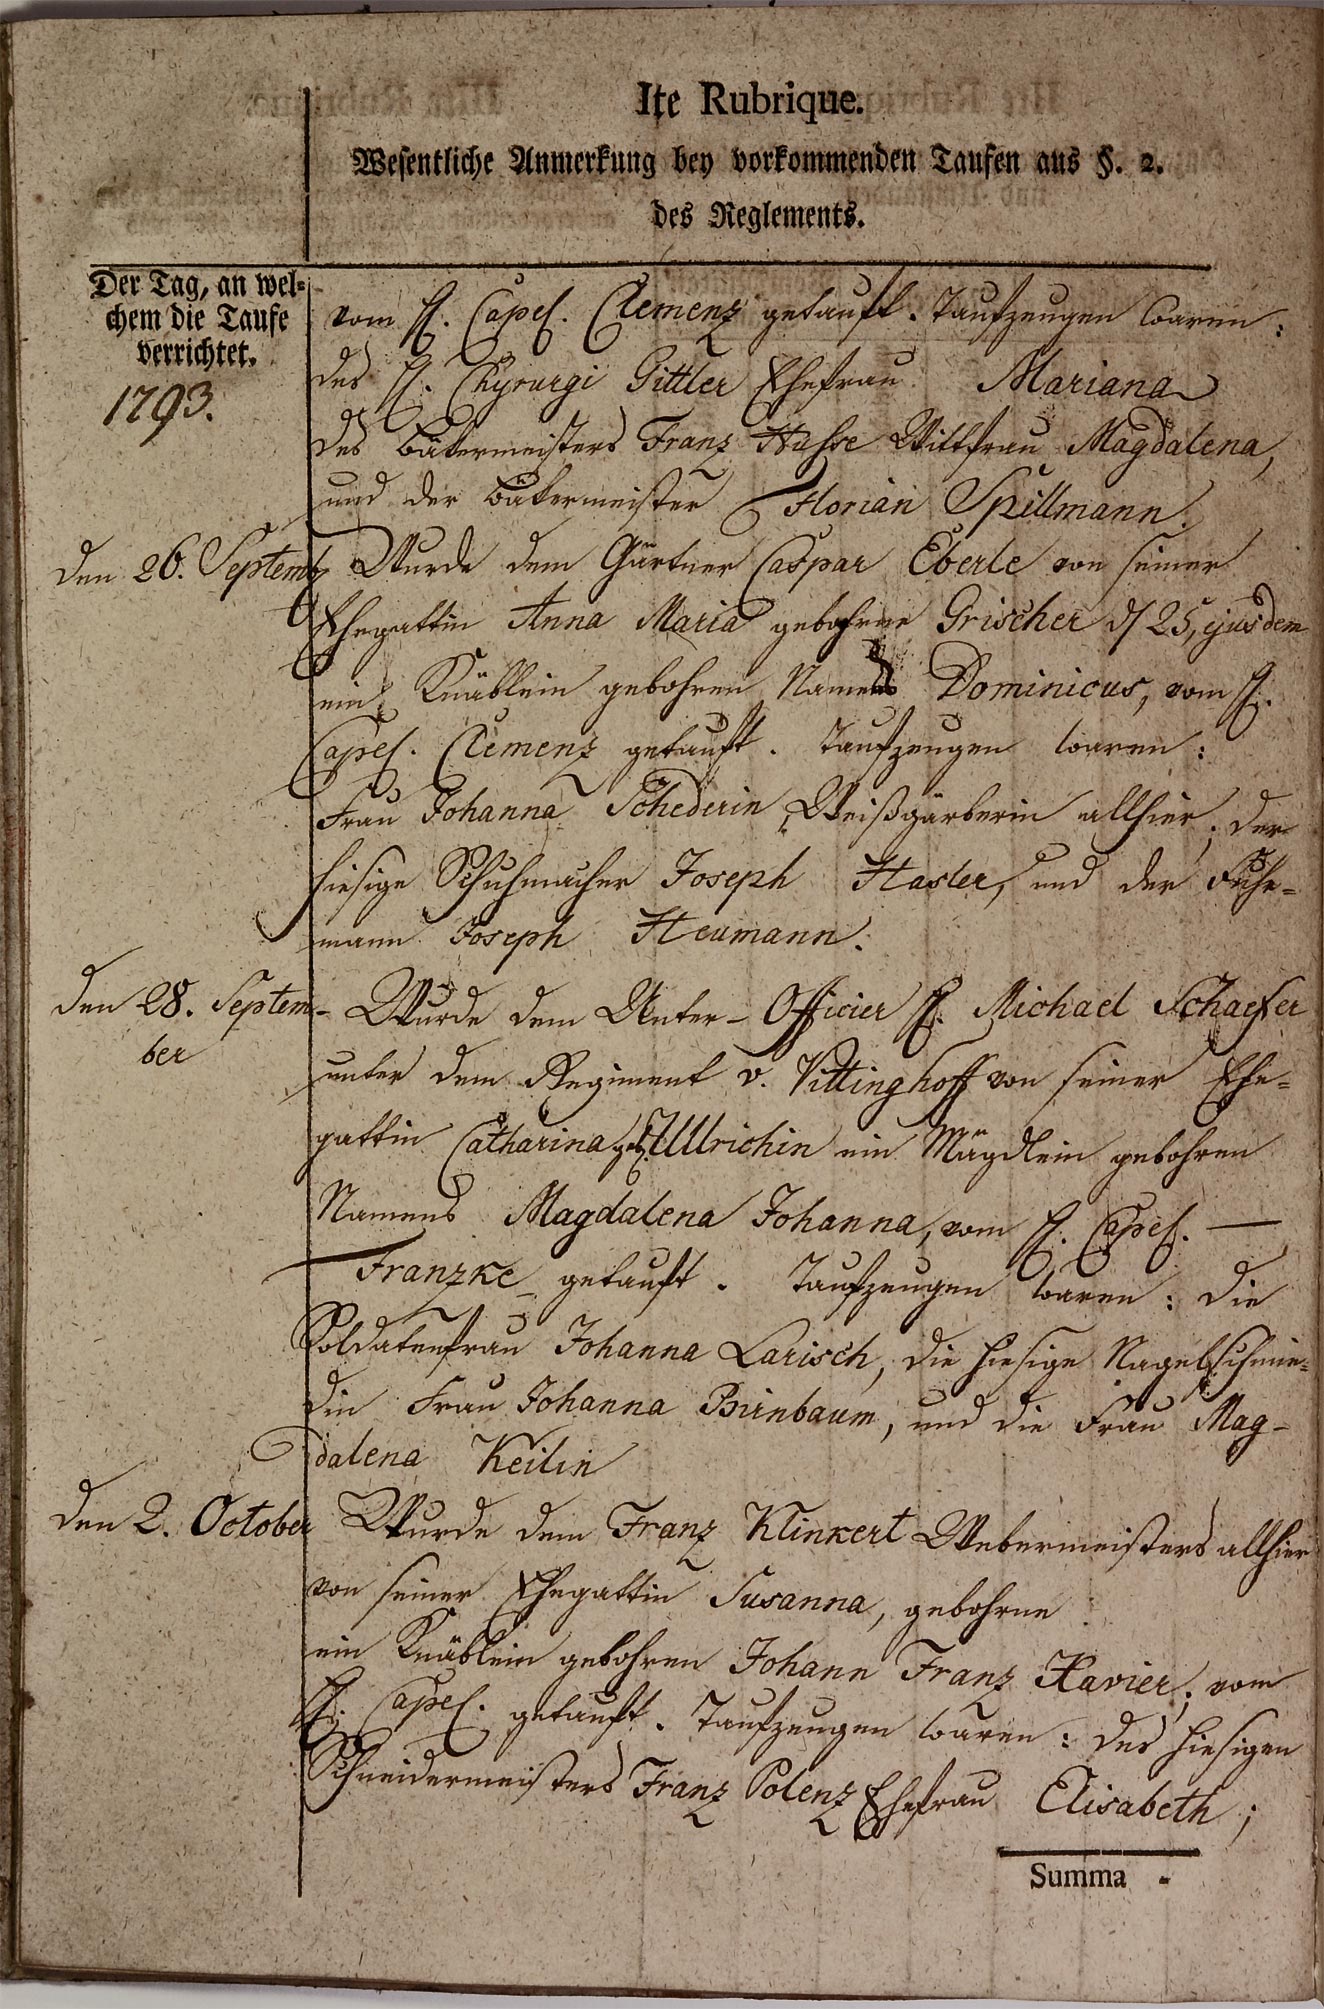 Ite Rubrique.
Wesentliche Anmerkung bey vorkommenden Taufen aus §. 2.
des Reglements.
Der Tag, an wel-
chem die Taufe
verrichtet.
1793.
vom H. Capel. Clemenz getauft. Taufzeugen waren:
des H. Chyrurgi Gittler Ehefrau Mariana
des Bäkermeisters Franz Hasse Wittfrau Magdalena,
und der Bäkermeister Florian Spillmann.
Den 26. Septemb
Wurde dem Gärtner Caspar Eberle von seiner
Ehegattin Anna Maria gebohrne Grischer d 25, ejusdem
ein Knäblein gebohren Namens Dominicus, vom H.
Capel. Clemenz getauft. Taufzeugen waren:
Frau Johanna Schederin, Weißgärberin allhier, der
hiesige Schuhmacher Joseph Hasler, und der Fuhr-
mann Joseph Heumann.
Den 28. Septem-
ber
Wurde dem Unter-Officier H. Michael Schaefer
unter dem Regiment v. Vittinghoff von seiner Ehe-
gattin Catharina geb. Ullrichin ein Mägdlein gebohren
Namens Magdalena Johanna, vom H. Capel. —
Franzke getauft. Taufzeugen waren: die
Soldatenfrau Johanna Larisch, die hiesige Nagelschmie-
din Frau Johanna Birnbaum, und die Frau Mag-
dalena Keilin
Den 2. October
Wurde dem Franz Klinkert Webermeisters allhier
von seiner Ehegattin Susanna, gebohrne
ein Knäblein gebohren Johann Franz Xavier, vom
H. Capel. getauft. Taufzeugen waren: des hiesigen
Schneidermeisters Franz Polenz Ehefrau Elisabeth;
Summa -